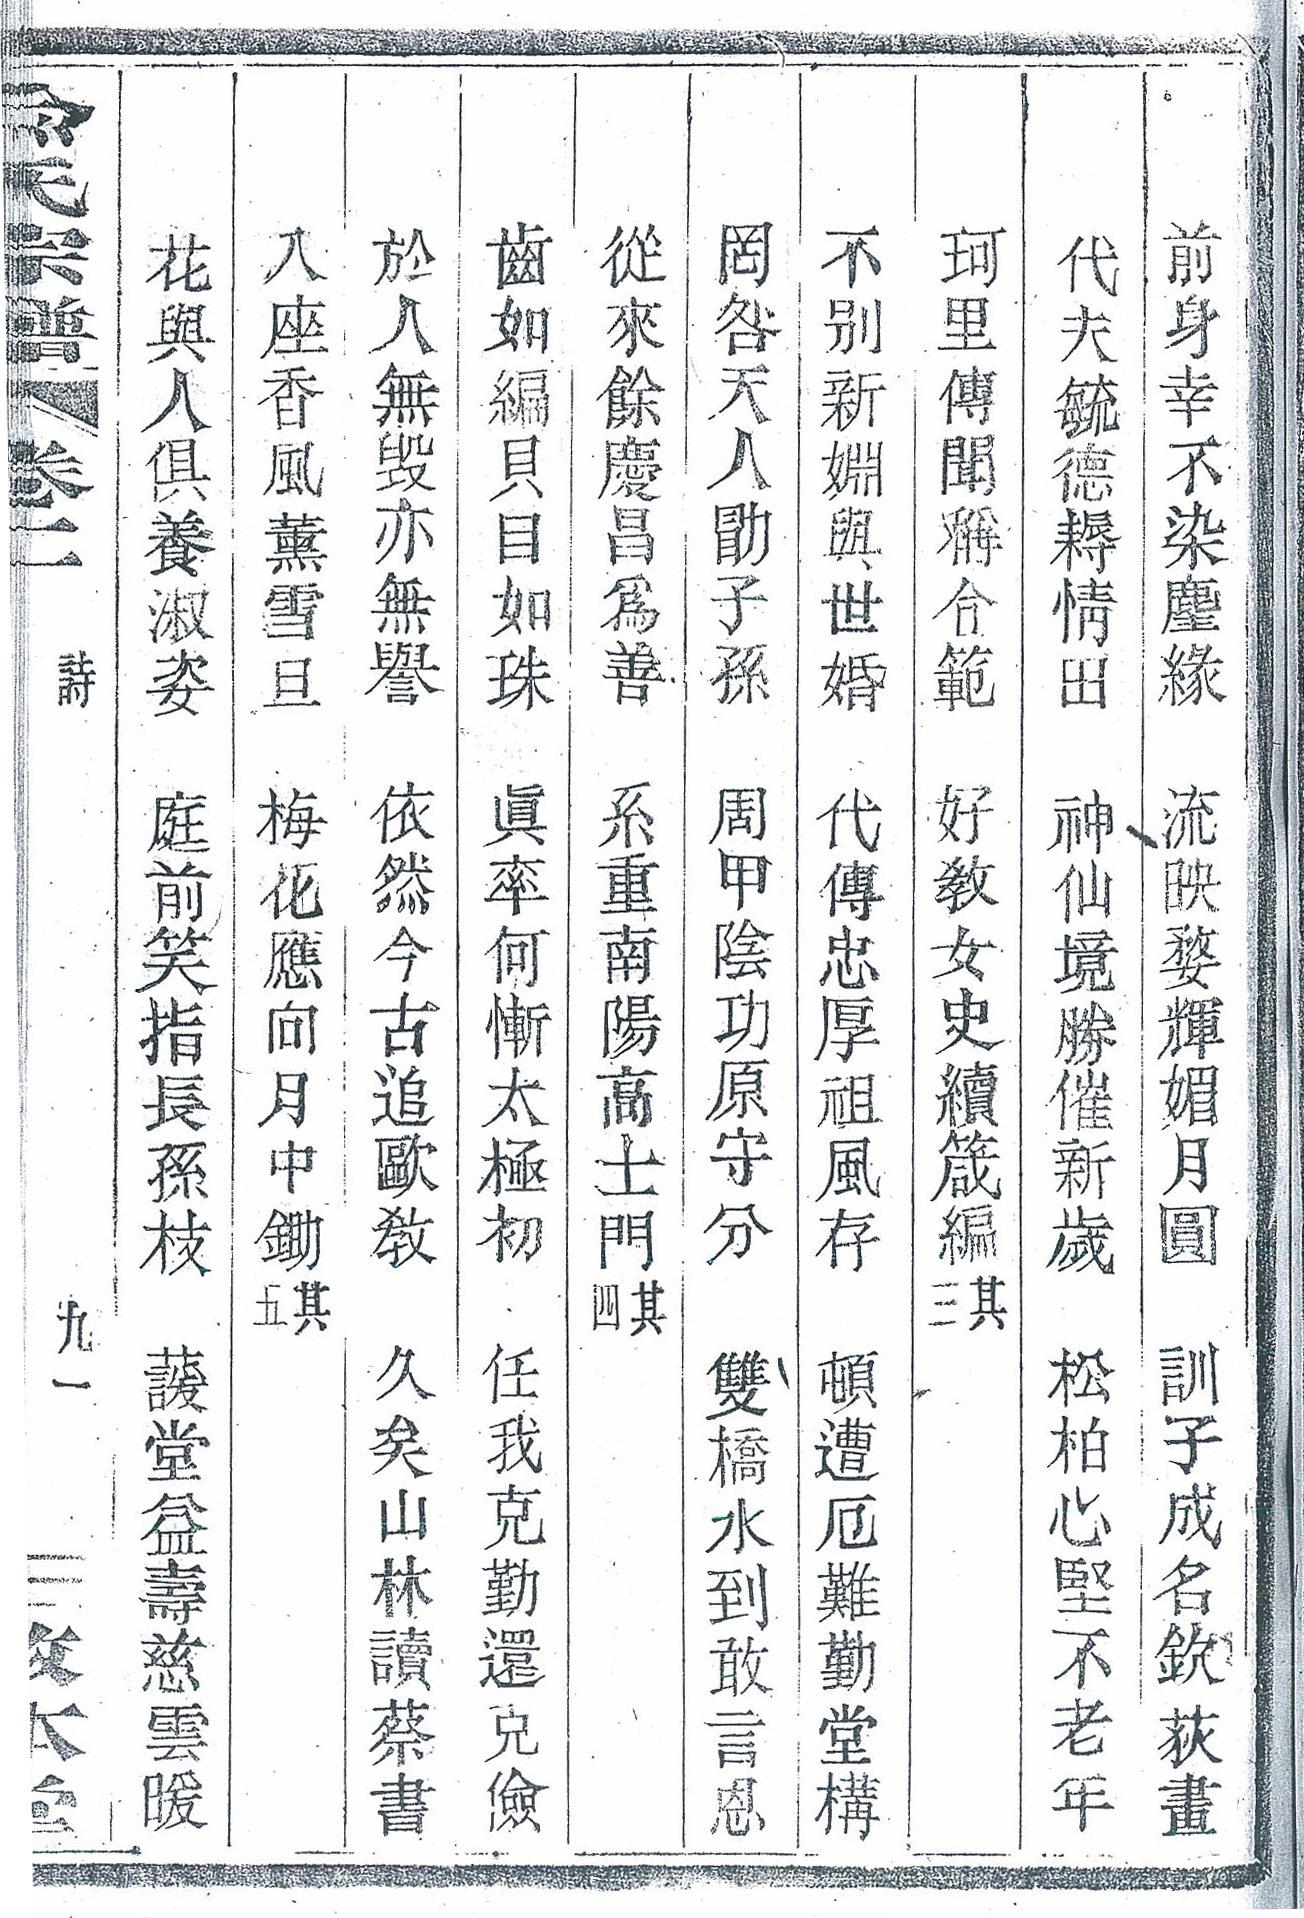 前身幸不染塵緣　流映婺輝媚月圓　訓子成名欽荻畫
代夫毓德耨情田　神仙境勝催新歲　松柏心堅不老年
珂里傳聞稱合範　好教女史續箴編其三
不別新婣與世婚　代傳忠厚祖風存　頓遭厄難勤堂構
罔咎天人勖子孫　周甲陰功原守分　雙橋水到敢言恩
從來餘慶昌為善　系重南陽高士門其四
齒如編貝目如珠　眞率何慚太極初　任我克勤還克儉
於人無毀亦無譽　依然今古追歐教　久矣山林讀蔡書
八座香風薰雪旦　梅花應向月中鋤其五
花與人俱養淑姿　庭前笑指長孫枝　諼堂益壽慈雲暖
氏宗譜　卷二　詩　九一　敦本堂